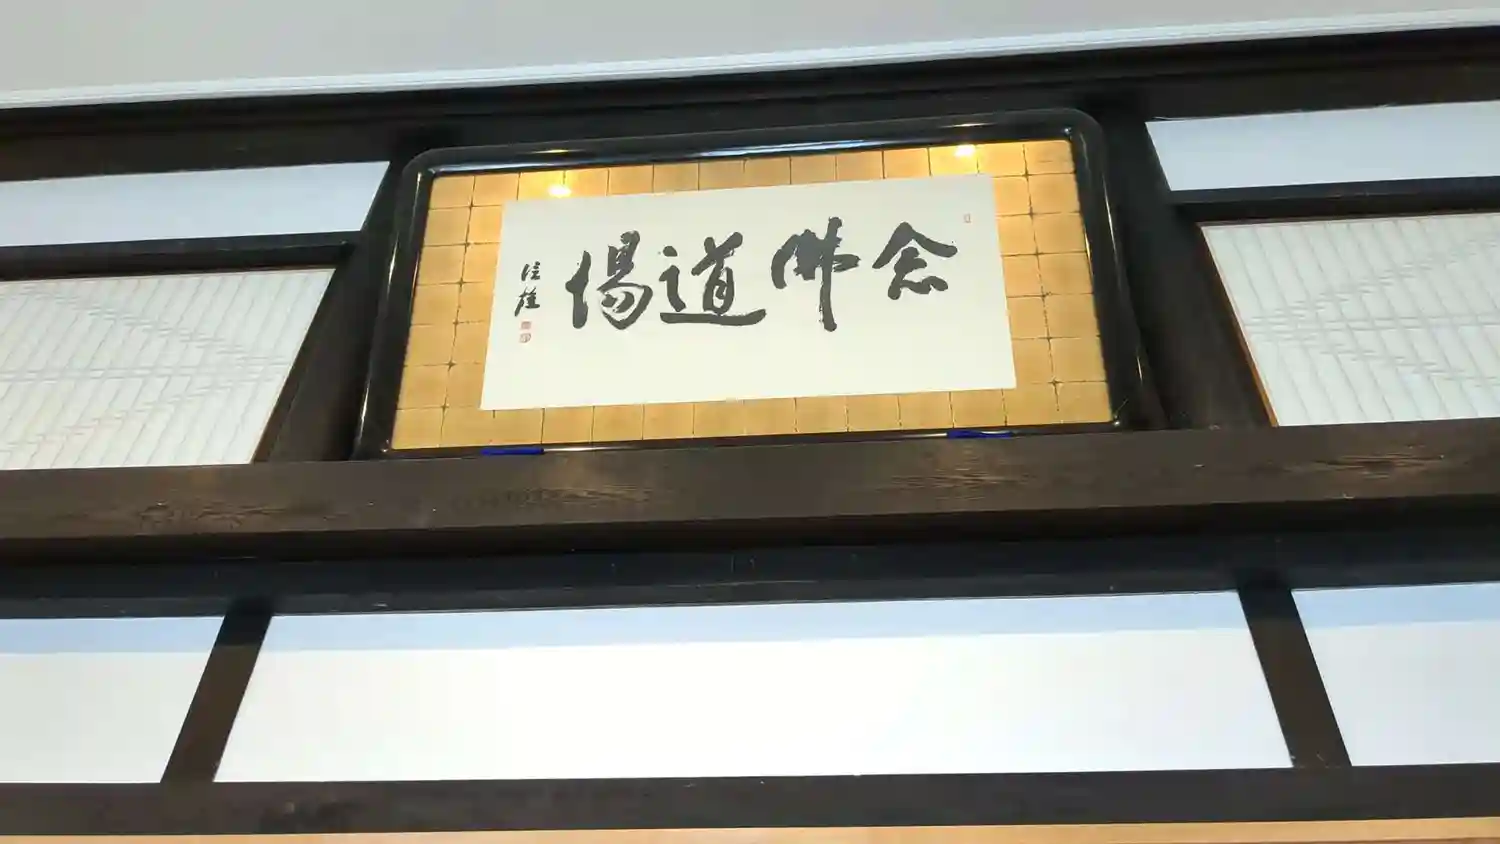 念佛道場